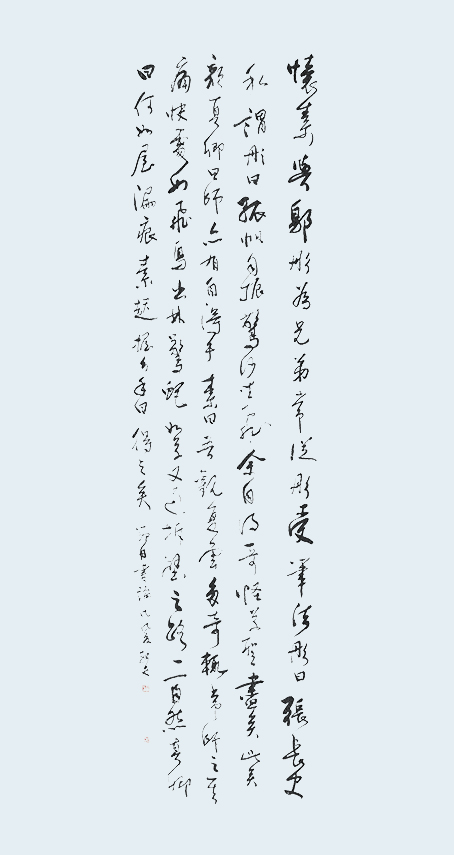 懷素與鄔彤為兄弟常從彤受筆法彤曰張長史
私謂彤曰孤帆自振驚沙坐飛余自得奇怪草聖盡矣此矣
顏真卿曰師亦有自得乎素曰吾觀夏雲多奇峰輒常師之其
痛快處如飛鳥出林驚蛇入草又遇坼壁之路一一自然真卿
曰何如屋漏痕素起握公手曰得之矣